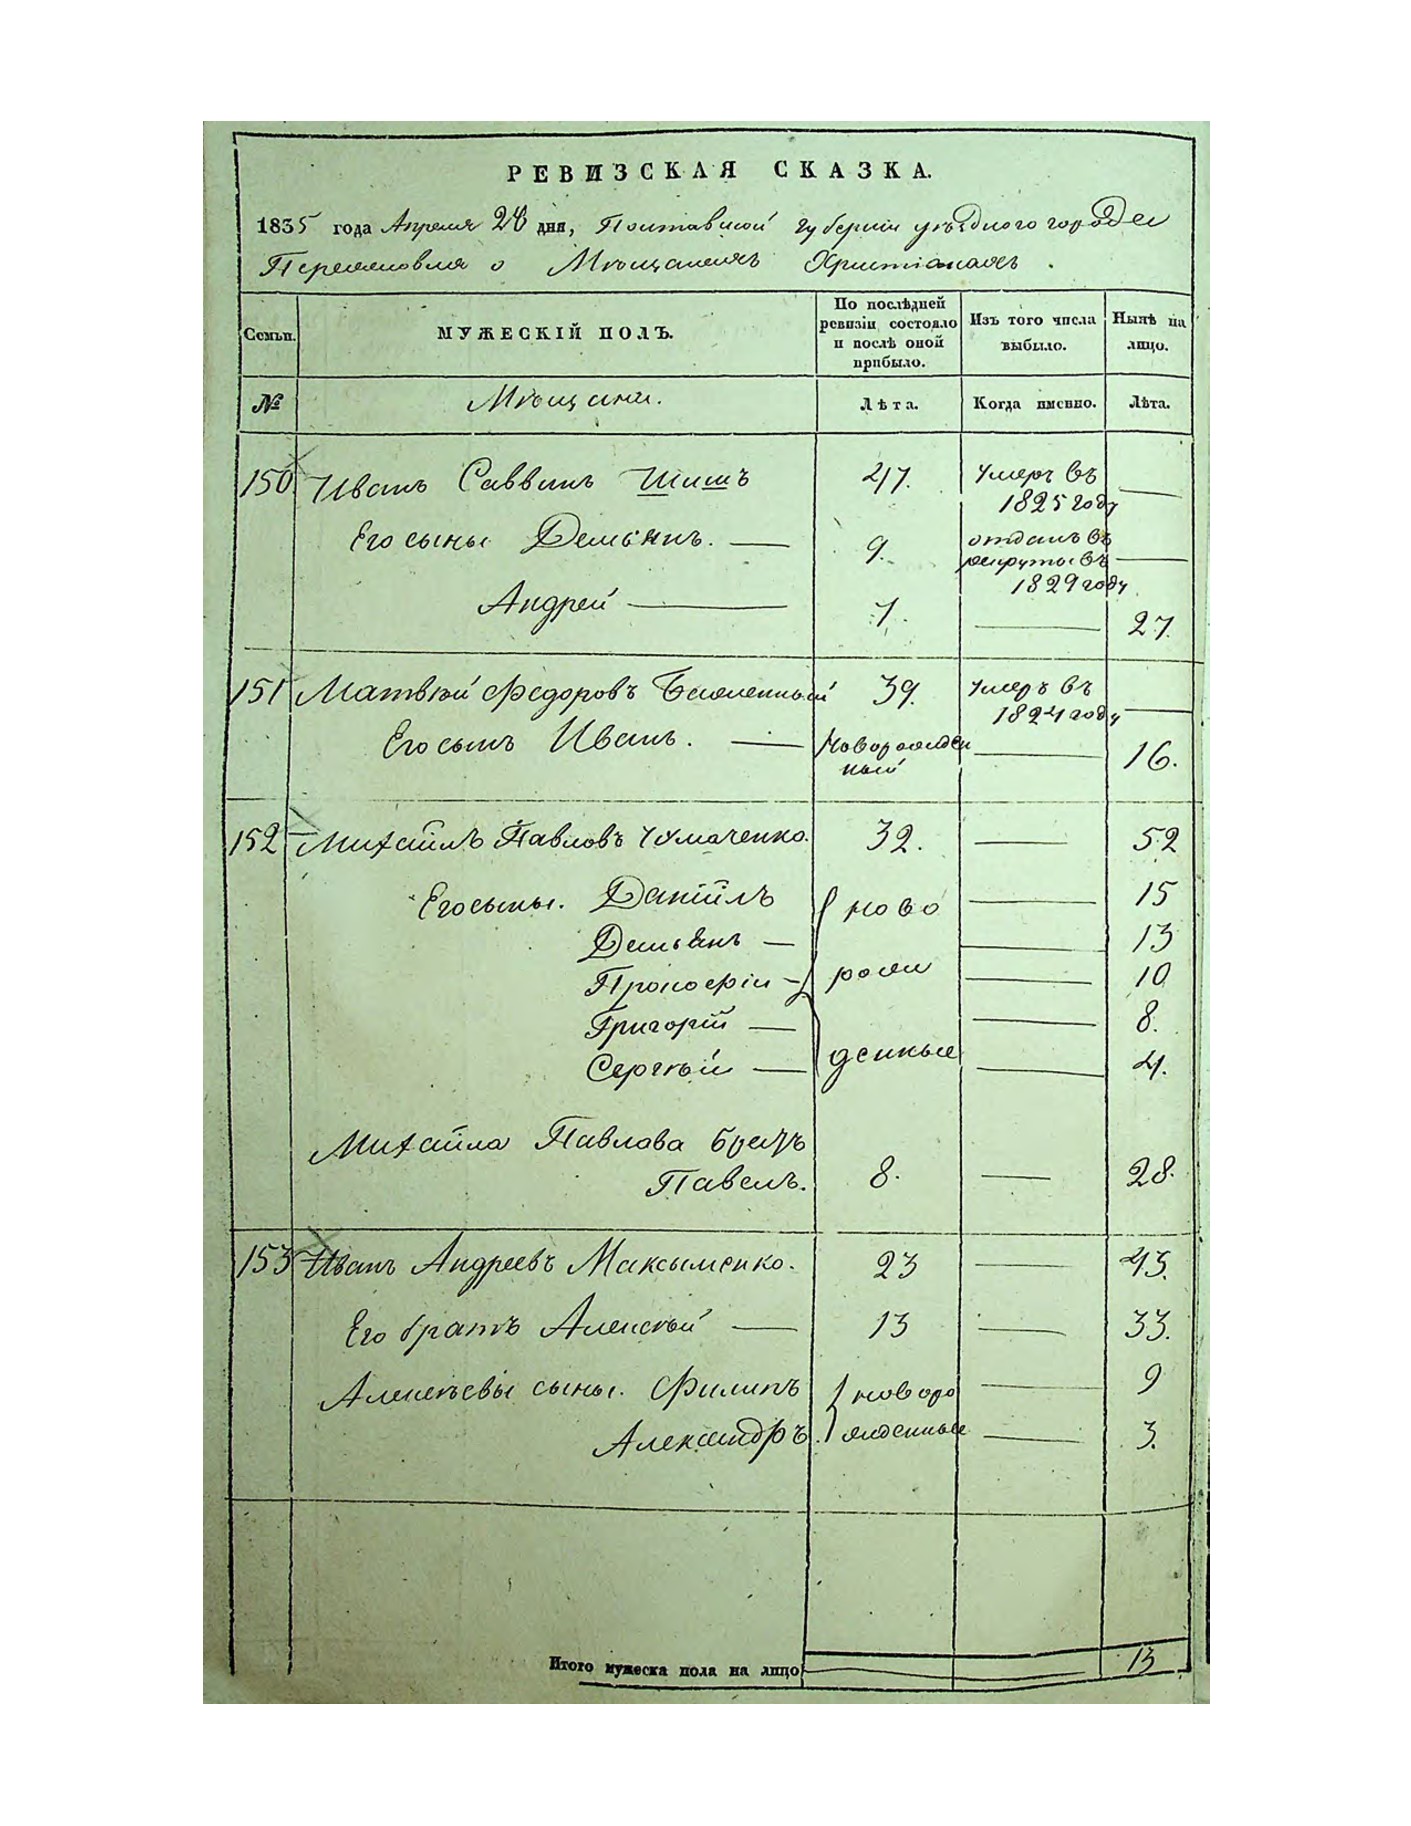 РЕВИЗСКАЯ СКАЗКА.
1835 года Апреля 28 дня, Полтавской губернии уѣзднаго города
Переяславля о Мѣщанахъ Христіанахъ.
Семьи. МУЖЕСКІЙ ПОЛЪ. По послѣдней ревизіи состояло и послѣ оной прибыло. Изъ того числа выбыло. Нынѣ на лицо.
№ Мѣщани. Лѣта. Когда именно. Лѣта.
150 Иванъ Саввинъ Шишъ 47. Умеръ въ 1825 году —
Его сыны Демьянъ. — 9. отданъ въ рекруты въ 1829 году —
Андрей — 7. — 27.
151 Матвѣй Федоровъ 39. Умеръ въ 1824 году —
Его сынъ Иванъ. — Новорожден ный — 16.
152 Михаилъ Павловъ Чумаченко. 32. — 52
Его сыны. Даніилъ ново — 15
Демьянъ — — 13
Прокофій — рож — 10
Григорій — — 8.
Сергѣй — денные — 4.
Михаила Павлова братъ
Павелъ. 8. — 28.
153 Иванъ Андреевъ Максыменко. 23 — 43.
Его братъ Алексѣй — 13 — 33.
Алексѣевы сыны. Филипъ новоро — 9
Александръ. жденные — 3.
Итого мужеска пола на лицо — 13